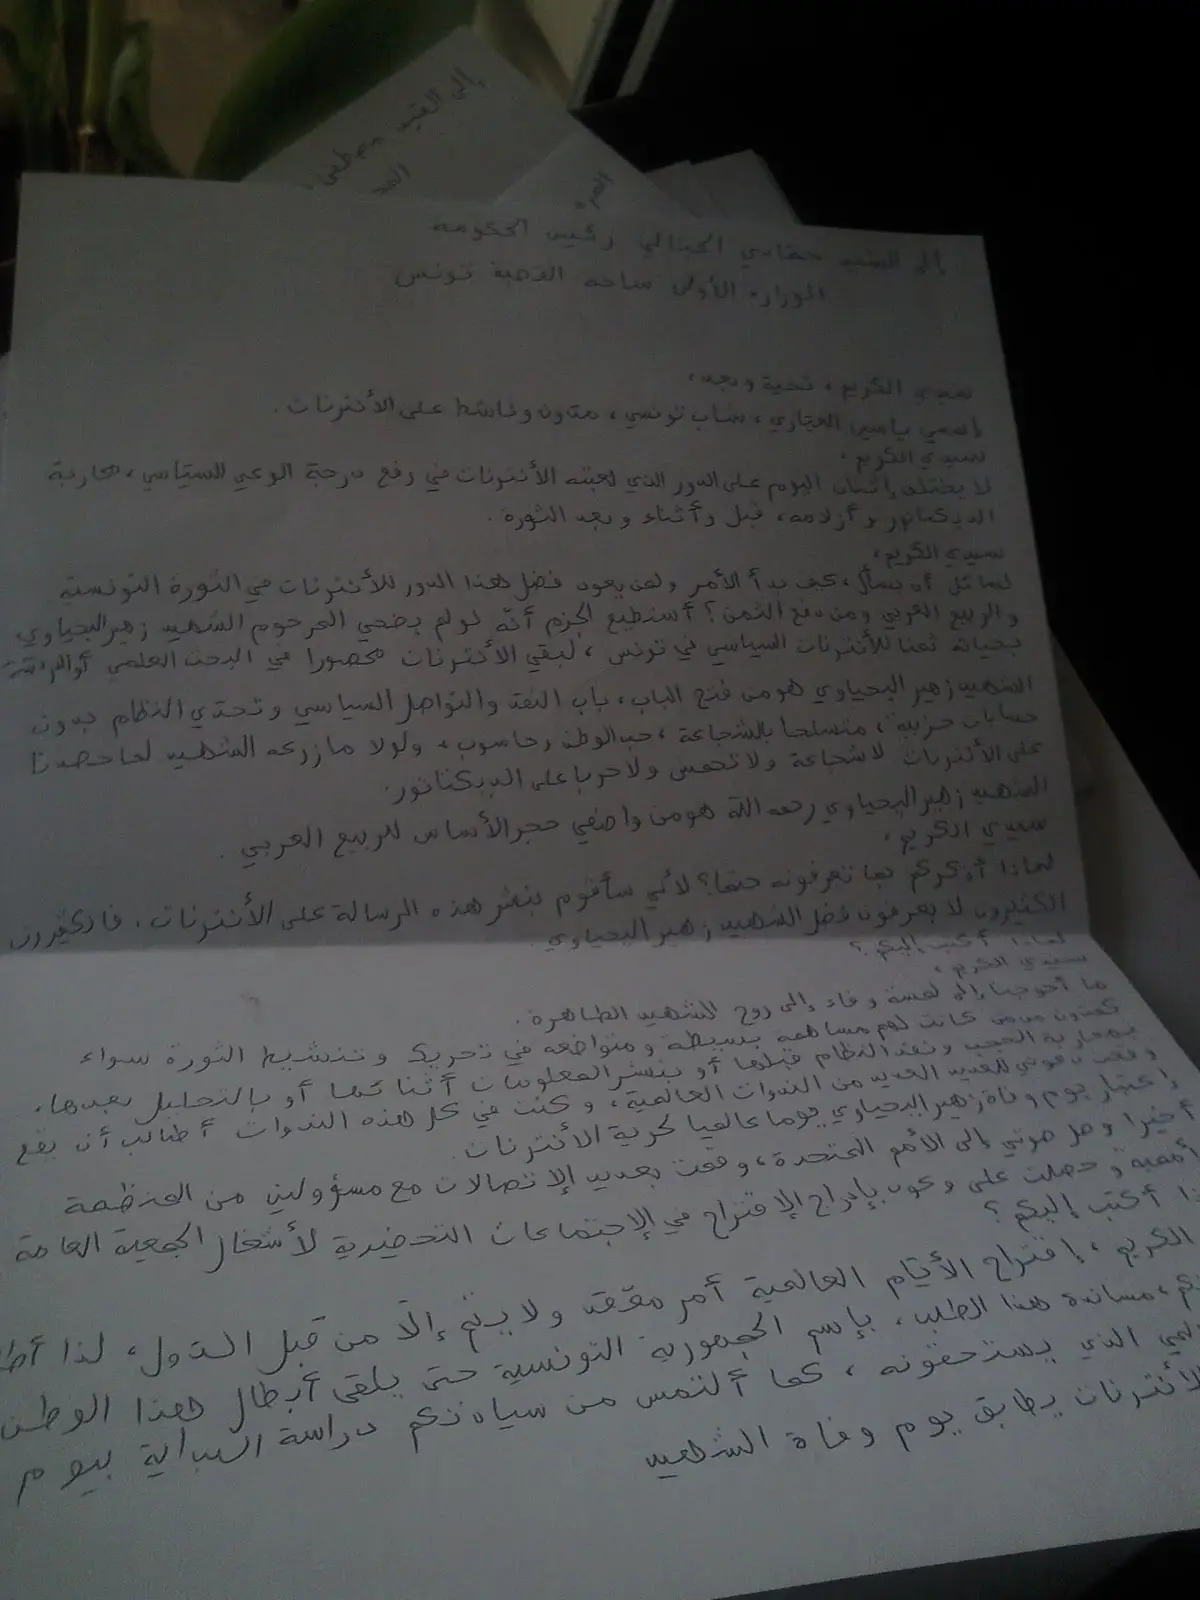 إلى السيد مصطفى
إلى السيد حمادي الجبالي رئيس الحكومة
الوزارة الأولى ساحة القصبة تونس
سيدي الكريم، تحية وبعد،
إسمي ياسين العياري، شاب تونسي، مدون وناشط على الأنترنات.
سيدي الكريم،
لا يختلف إثنان اليوم على الدور الذي لعبته الأنترنات في رفع درجة الوعي السياسي، محاربة
الديكتاتور وأزلامه، قبل وأثناء وبعد الثورة.
سيدي الكريم،
لسائل أن يسأل، كيف بدأ الأمر ولمن يعود فضل هذا الدور للأنترنات في الثورة التونسية
والربيع العربي ومن دفع الثمن؟ أستطيع الجزم أنّه لو لم يضحي المرحوم الشهيد زهير اليحياوي
بحياته ثمنا للأنترنات السياسي في تونس، لبقي الأنترنات محصورا في البحث العلمي أو
الشهيد زهير اليحياوي هو من فتح الباب، باب النقد والتواصل السياسي وتحدي النظام بدون
حسابات حزبية، متسلحا بالشجاعة، حب الوطن وحاسوب، ولولا ما زرعه الشهيد لما حصدنا
على الأنترنات لا شجاعة ولا تحمس ولا حربا على الديكتاتور.
الشهيد زهير اليحياوي رحمه الله هو من واضعي حجر الأساس للربيع العربي.
سيدي الكريم،
لماذا أذكركم بما تعرفونه حتما؟ لأني سأقوم بنشر هذه الرسالة على الأنترنات، فالكثيرون
الكثيرون لا يعرفون فضل الشهيد زهير اليحياوي.
لماذا أكتب إليكم؟
سيدي الكريم،
ما أحوجنا إلى لمسة وفاء إلى روح الشهيد الطاهرة.
كمدون ممن كانت لهم مساهمة بسيطة ومتواضعة في تحريك وتنشيط الثورة سواء
بمحاربة الحجب ونقد النظام قبلها أو بنشر المعلومات أثنائها أو بالتحليل بعدها،
وقعت دعوتي للعديد العديد من الندوات العالمية، وكنت في كل هذه الندوات أطالب أن يقع
إعتبار يوم وفاة زهير اليحياوي يوما عالميا لحرية الأنترنات.
أخيرا وصل صوتي إلى الأمم المتحدة، وقمت بعديد الإتصالات مع مسؤولين من المنظمة
أممية وحصلت على وعود بإدراج الإقتراح في الإجتماعات التحضيرية لأشغال الجمعية العامة
أكتب إليكم؟
الكريم، إقتراح الأيّام العالمية أمر معقد ولا يتمّ إلّا من قبل الدول، لذا
مساندة هذا الطلب، بإسم الجمهورية التونسية حتى يلقى أبطال هذا الوطن
الذي يستحقونه، كما ألتمس من سيادتكم دراسة البداية بيوم
الأنترنات يطابق يوم وفاة الشهيد